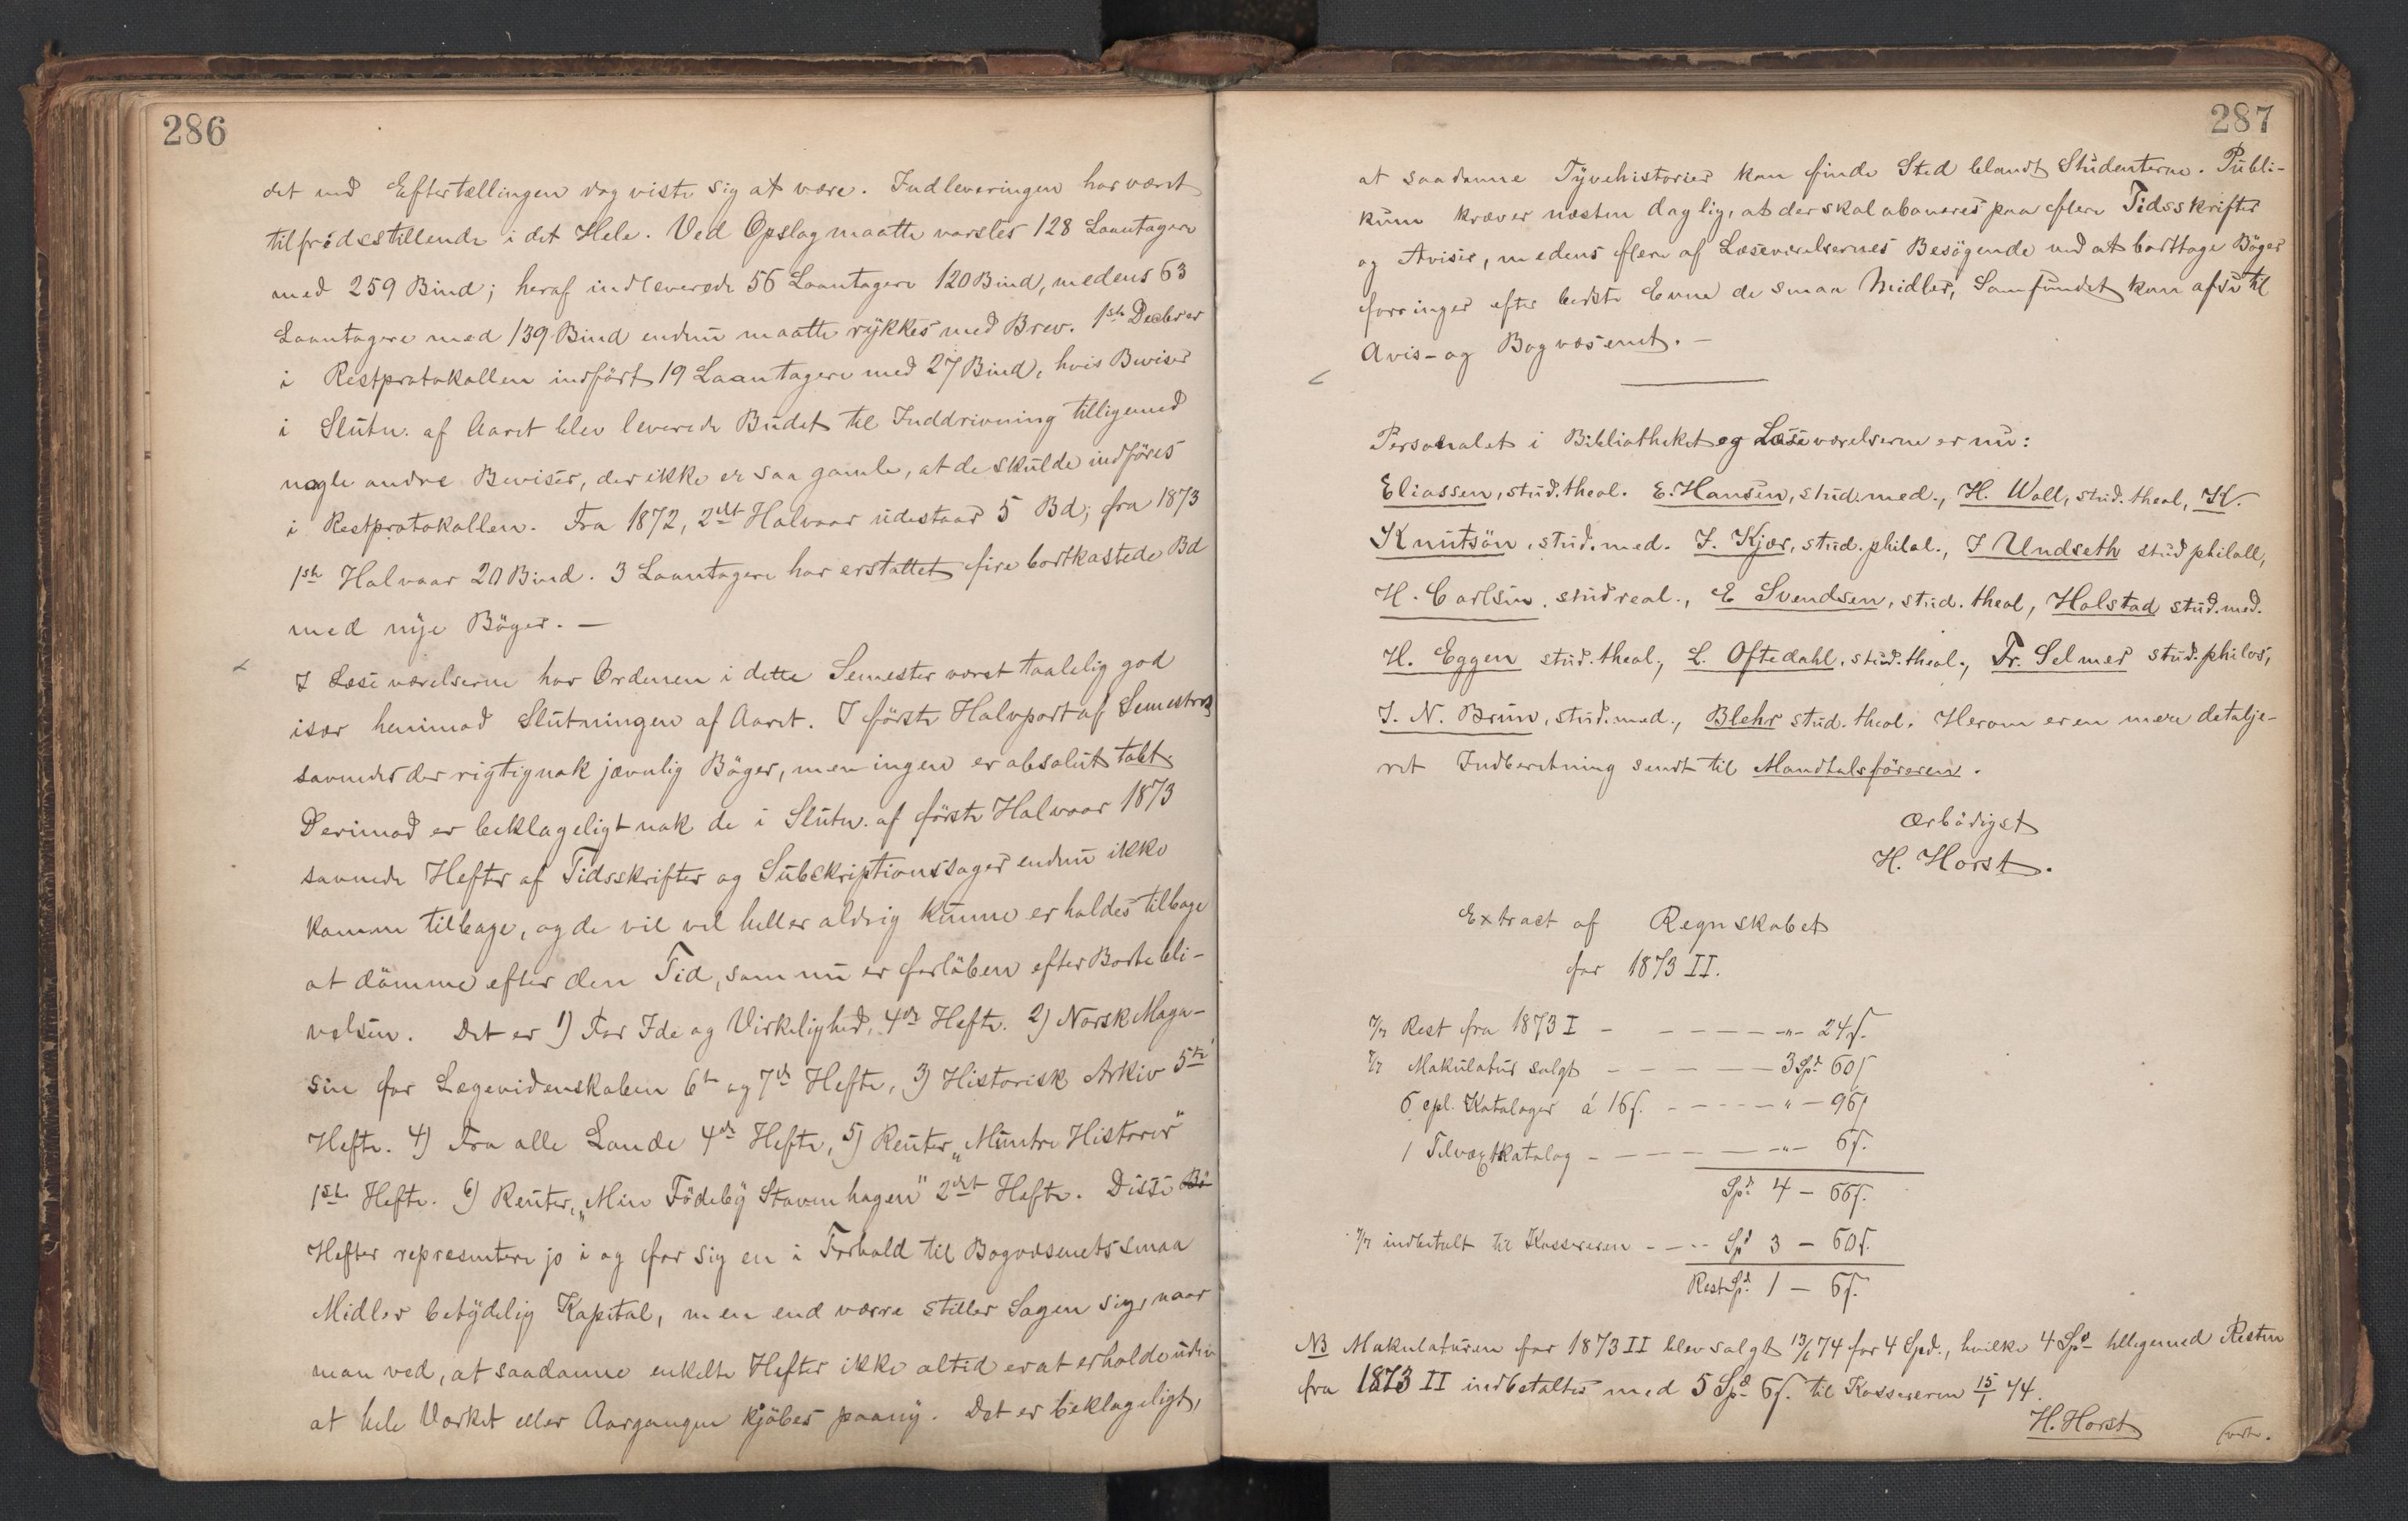 286
det ved Eftertællingen dog viste sig at være. Indleveringen har været
tilfredsstillende i det Hele. Ved Opslag maatte varsles 128 Laantagere
med 259 Bind; heraf indleverede 56 Laantagere 120 Bind, medens 63
Laantagere med 139 Bind endnu maatte rykkes med Brev. 1ste Decbr er
i Restprotokollen indført 19 Laantagere med 27 Bind, hvis Beviser
i Slutn. af Aaret blev leverede Budet til Inddrivning tilligemed
nogle andre Beviser, der ikke er saa gamle, at de skulde indføres
i Restprotokollen. Fra 1872, 2det Halvaar udestaar 5 Bd; fra 1873
1ste Halvaar 20 Bind. 3 Laantagere har erstattet fire bortkastede Bd
med nye Bøger. —
I Læseværelserne har Ordenen i dette Semester været taalelig god
især henimod Slutningen af Aaret. I første Halvpart af Semestret
savnedes der rigtignok jævnlig Bøger, men ingen er absolut tabt
Derimod er beklageligt nok de i Slutn. af første Halvaar 1873
savnede Hefter af Tidsskrifter og Subskriptionssager endnu ikke
komne tilbage, og de vil vel heller aldrig kunne erholdes tilbage
at dømme efter den Tid, som nu er forløben efter Bortebli-
velsen. Det er 1) For Ide og Virkelighed, 4de Hefte. 2) Norsk Maga-
sin for Lægevidenskaben 6te og 7de Hefte, 3) Historisk Arkiv 5te
Hefte. 4) Fra alle Lande 4de Hefte, 5) Reuter „Muntre Historier"
1ste Hefte. 6) Reuter, „Min Fødeby Stavenhagen" 2det Hefte. Disse Bö
Hefter repræsentere jo i og for sig en i Forhold til Bogvæsenets smaa
Midler betydelig Kapital, men end værre stiller Sagen sig, naar
man ved, at saadanne enkelte Hefter ikke altid er at erholde uden
at hele Værket eller Aargangen kjøbes paany. Det er beklageligt,
287
at saadanne Tyvehistorier kan finde Sted blandt Studenterne. Publi-
kum kræver næsten daglig, at der skal aboneres paa flere Tidsskrifter
og Aviser, medens flere af Læseværelsernes Besøgende ved at borttage Bøger
forringer efter bedste Evne de smaa Midler, Samfundet kan afse til
Avis- og Bogvæsenet. —
Personalet i Bibliotheket og Læseværelserne er nu:
Eliassen, stud. theol. E. Hansen, stud. med., H. Wall, stud. theol, K.
Knutsön, stud. med. J. Kjær, stud. philol., I Undseth stud philoll,
H. Carlsen, stud real., E Svendsen, stud. theol, Holstad stud. med.
H. Eggen stud. theol., L. Oftedahl, stud. theol., Fr. Selmer stud. philos,
J. N. Brun, stud. med., Blehr stud. theol. Herom er en mere detalje-
ret Indberetning sendt til Mandtalsføreren.
Ærbødigst
H. Horst.
Extract af Regnskabet
for 1873 II.
Rest fra 1873 I - - - - - -"- 24 ſ.
Makulatur solgt - - - - - 3 Spd 60 ſ
6 expl. Kataloger á 16 ſ. - - - - " - 96 ſ
1 Tilvæxtkatalog - - - - -"- 6 ſ.
Spd. 4 - 66 ſ.
indbetalt til Kassereren - - - Spd 3 - 60 ſ.
Rest Spd. 1 - 6 ſ.
NB Makulaturen for 1873 II blev solgt 13/1 74 for 4 Spd., hvilke 4 Spd tilligemed Resten
fra 1873 II indbetaltes med 5 Spd 6 ſ. til Kassereren 15/1 74.
H. Horst